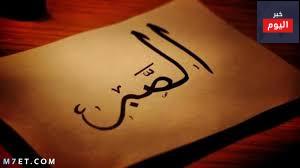 خبر
اليوم
الصَّبْر
M7ET.COM